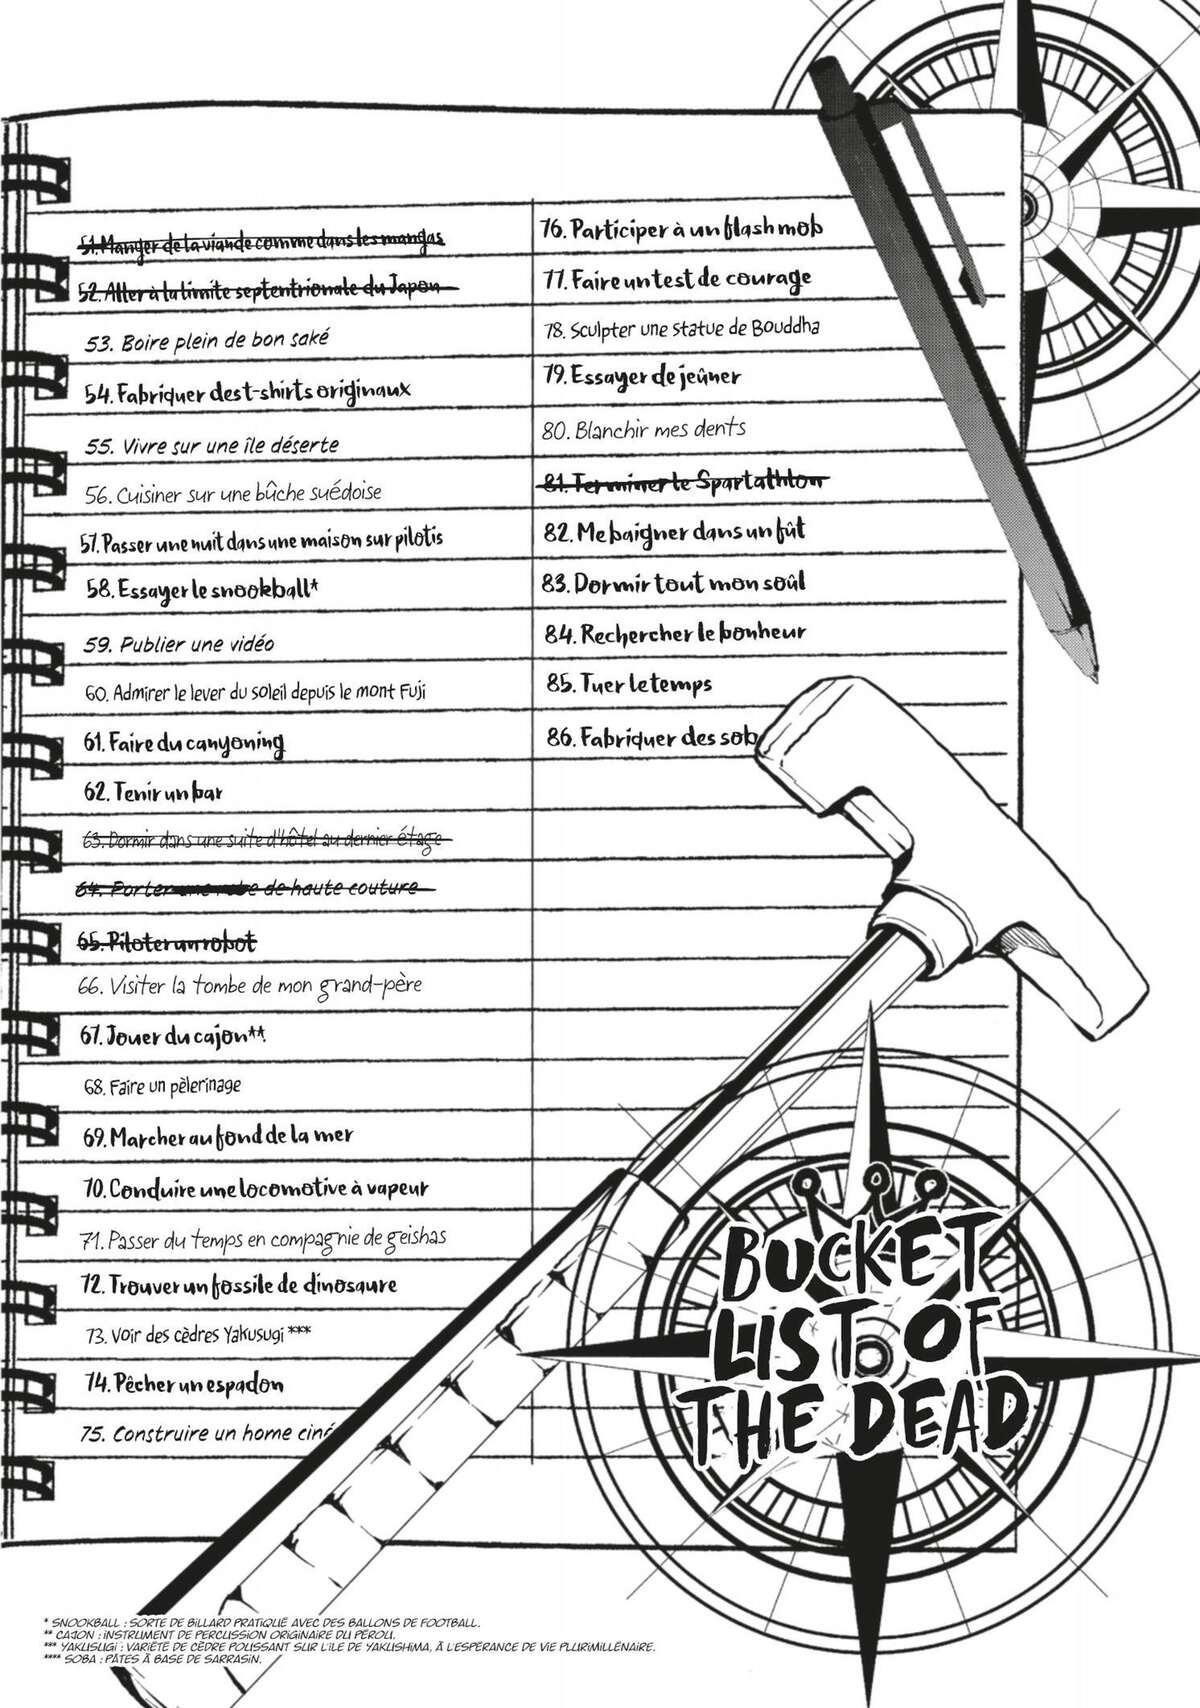 51. Manger de la viande comme dans les mangas
52. Aller à la limite septentrionale du Japon
53. Boire plein de bon saké
54. Fabriquer des t-shirts originaux
55. Vivre sur une île déserte
56. Cuisiner sur une bûche suédoise
57. Passer une nuit dans une maison sur pilotis
58. Essayer le snookball*
59. Publier une vidéo
60. Admirer le lever du soleil depuis le mont Fuji
61. Faire du canyoning
62. Tenir un bar
63. Dormir dans une suite d'hôtel au dernier étage
64. Porter une robe de haute couture
65. Piloter un robot
66. Visiter la tombe de mon grand-père
67. Jouer du cajon**
68. Faire un pèlerinage
69. Marcher au fond de la mer
70. Conduire une locomotive à vapeur
71. Passer du temps en compagnie de geishas
72. Trouver un fossile de dinosaure
73. Voir des cèdres Yakusugi ***
74. Pêcher un espadon
75. Construire un home ciné
76. Participer à un flash mob
77. Faire un test de courage
78. Sculpter une statue de Bouddha
79. Essayer de jeûner
80. Blanchir mes dents
81. Terminer le Spartathlon
82. Me baigner dans un fût
83. Dormir tout mon soûl
84. Rechercher le bonheur
85. Tuer le temps
86. Fabriquer des sob
BUCKET
LIST OF
THE DEAD
* SNOOKBALL : SORTE DE BILLARD PRATIQUÉ AVEC DES BALLONS DE FOOTBALL.
** CAJON : INSTRUMENT DE PERCUSSION ORIGINAIRE DU PÉROU.
*** YAKUSUGI : VARIÉTÉ DE CÈDRE POUSSANT SUR L'ÎLE DE YAKUSHIMA, À L'ESPÉRANCE DE VIE PLURIMILLÉNAIRE.
**** SOBA : PÂTES À BASE DE SARRASIN.